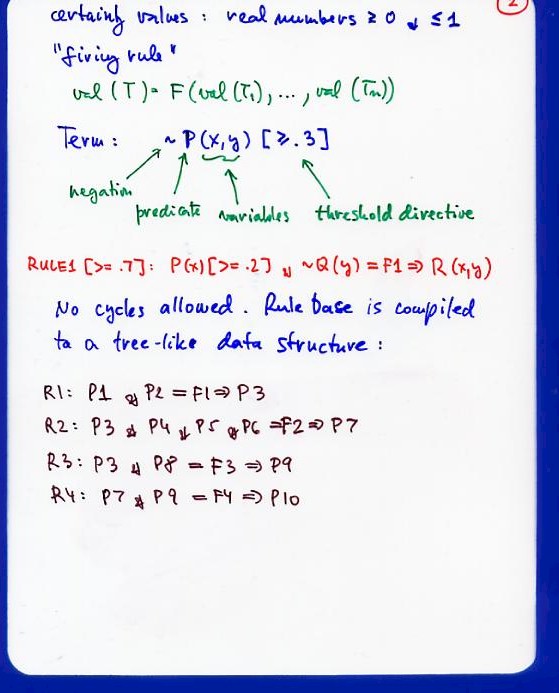 2
certainty values : real numbers ≥ 0 & ≤ 1
"firing rule"
val (T) = F(val (T1), ..., val (Tn))
Term : ~ P(x,y) [≥.3]
negation
predicate variables threshold directive
RULE1 [>= .7]: P(x)[>= .2] & ~Q(y) =F1=> R(x,y)
No cycles allowed. Rule base is compiled
to a tree-like data structure :
R1: P1 & P2 = F1=> P3
R2: P3 & P4 & P5 & P6 =F2=> P7
R3: P3 & P8 = F3 => P9
R4: P7 & P9 = F4 => P10